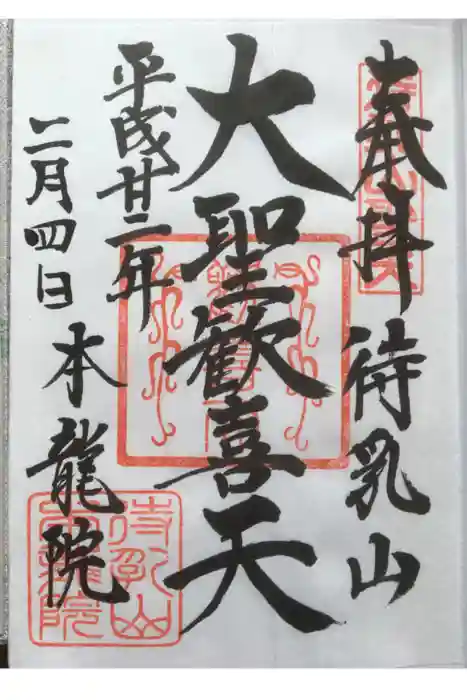 奉拝 待乳山
大聖歓喜天
平成廿二年
二月四日 本龍院
待乳山
本龍院